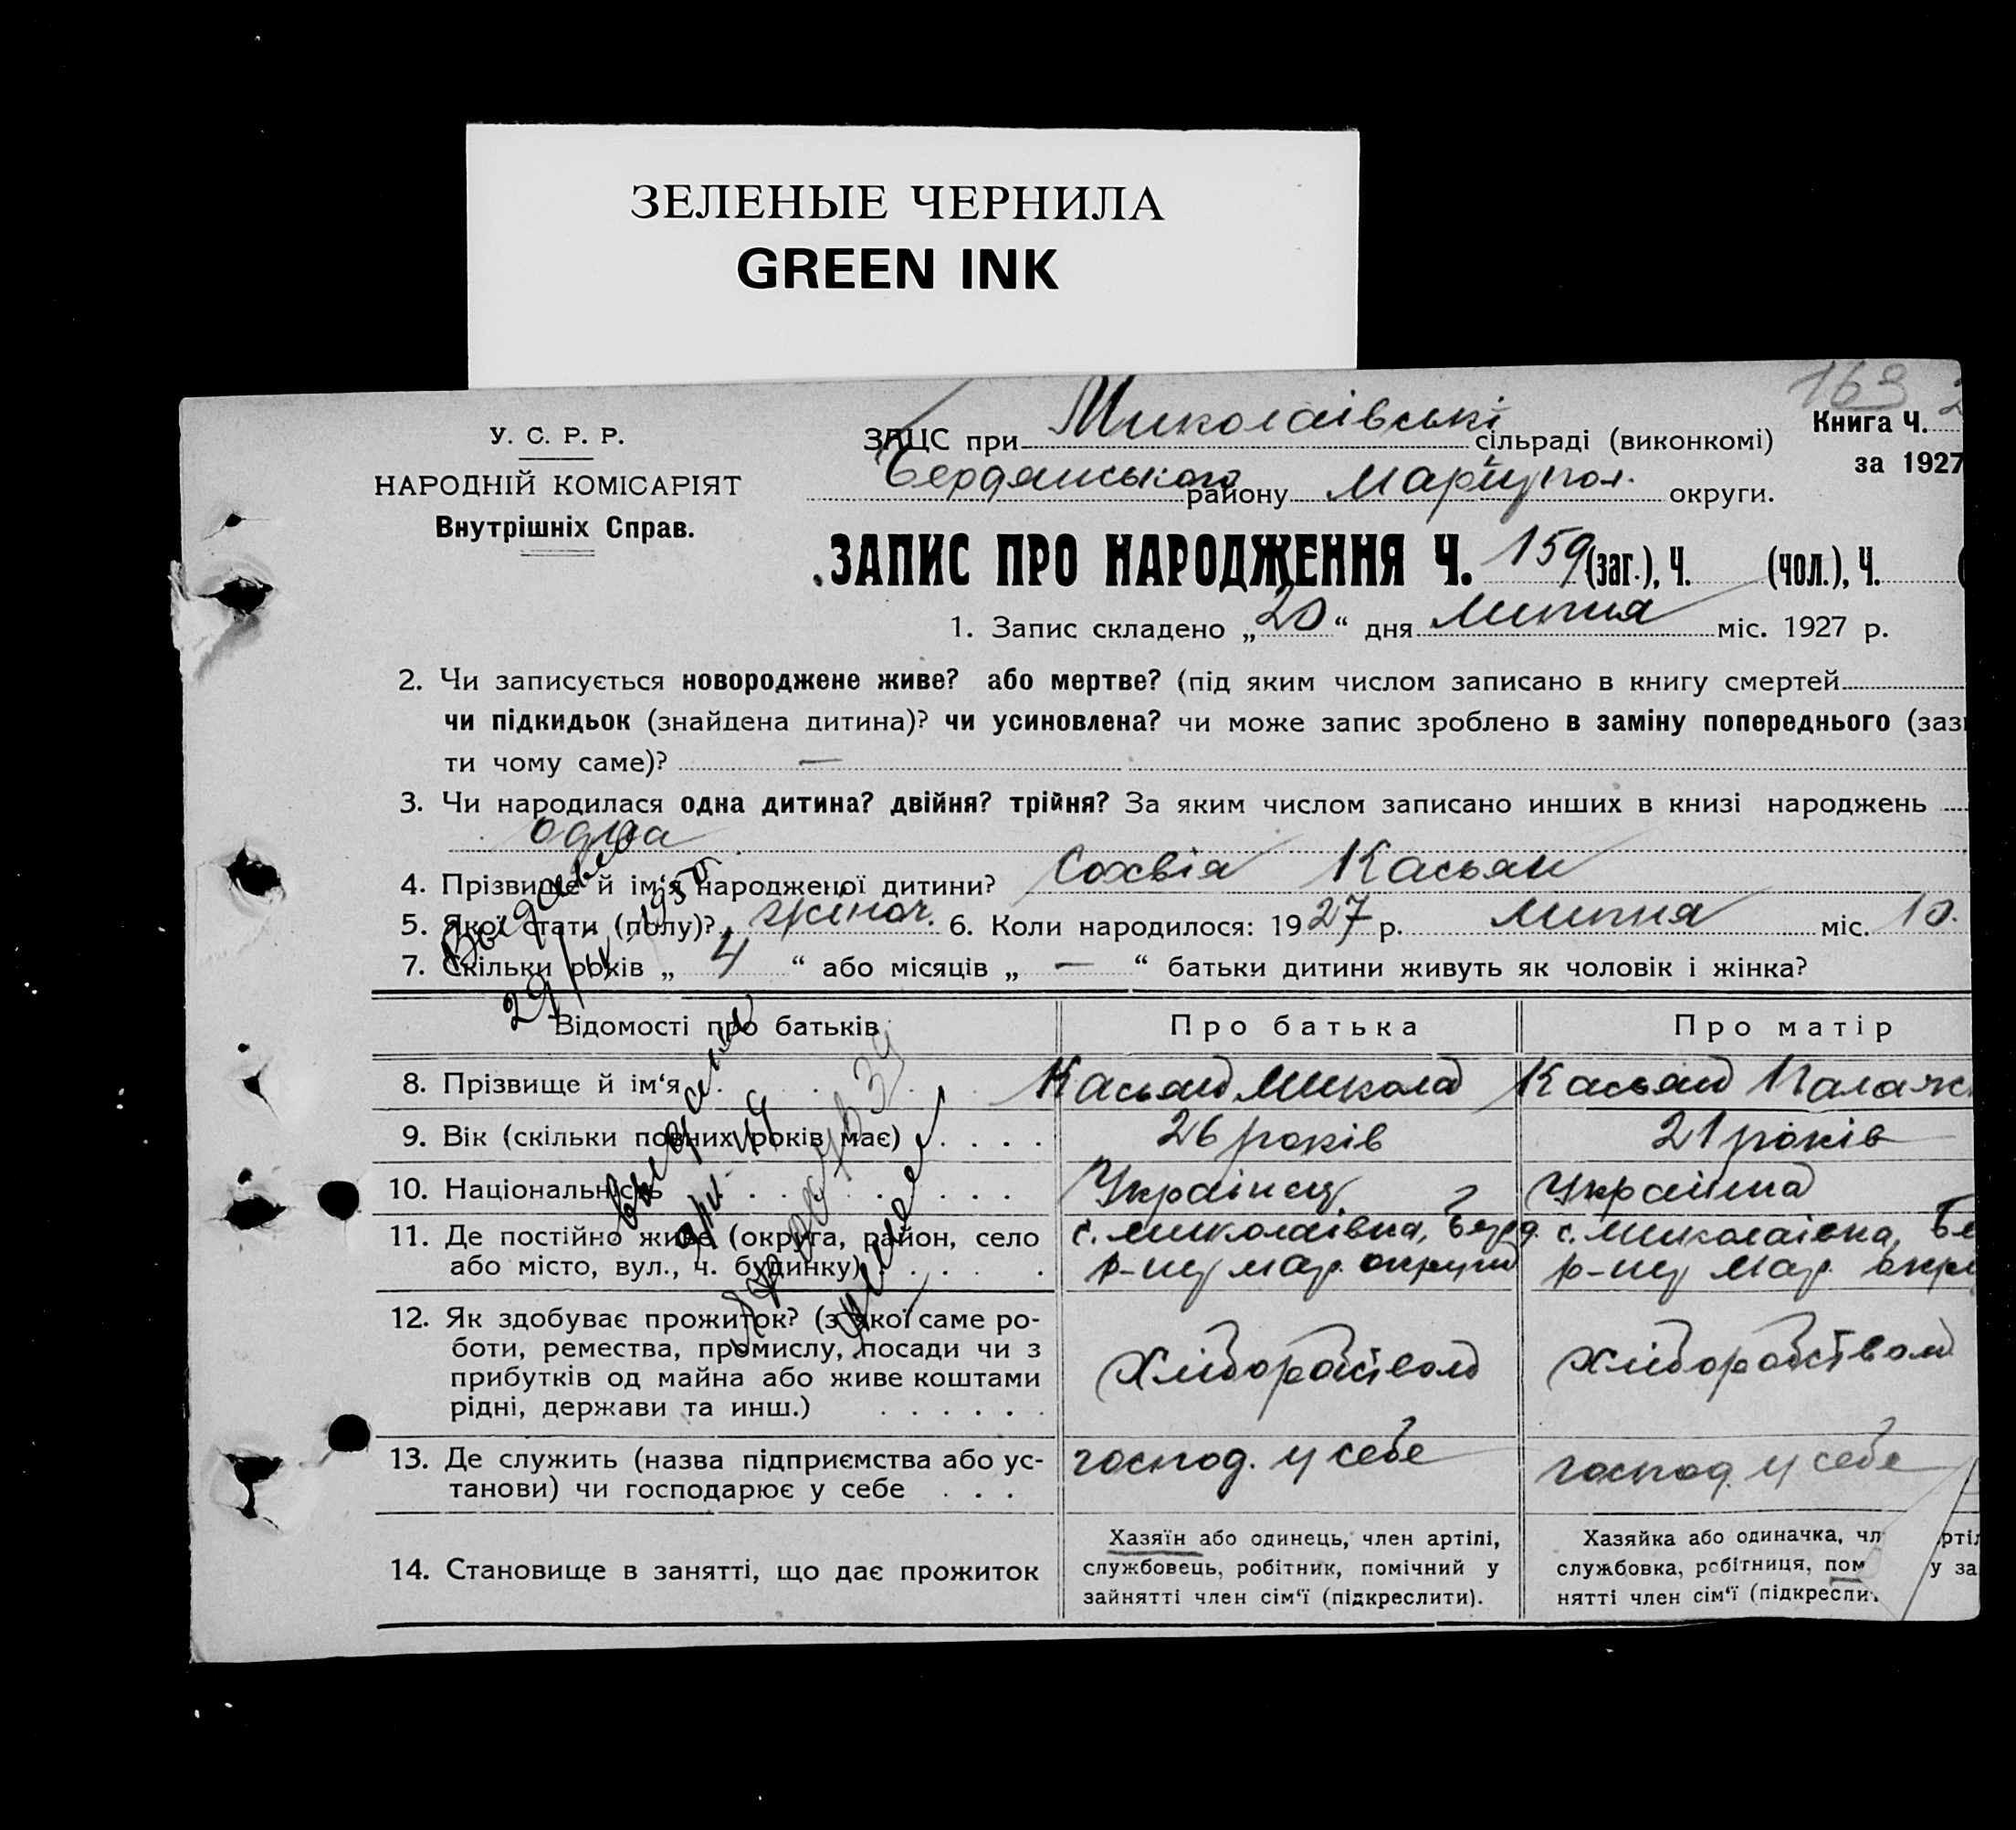 ЗЕЛЕНЫЕ ЧЕРНИЛА
GREEN INK
163 2
У. С. Р. Р.
НАРОДНІЙ КОМІСАРІЯТ
Внутрішніх Справ.
ЗАЦС при Миколаівські сільраді (виконкомі)
Книга Ч.
за 1927
Бердянського району Маріупол. округи.
ЗАПИС ПРО НАРОДЖЕННЯ Ч. 159 (заг.), Ч. (чол.), Ч. (
1. Запис складено „20“ дня Липня міс. 1927 р.
2. Чи записується новороджене живе? або мертве? (під яким числом записано в книгу смертей
чи підкидьок (знайдена дитина)? чи усиновлена? чи може запис зроблено в заміну попереднього (заз
ти чому саме)? —
3. Чи народилася одна дитина? двійня? трійня? За яким числом записано инших в книзі народжень
одна
4. Прізвище й ім‘я народженої дитини? Сохвія Касьян
5. Якої стати (полу)? жіноч. 6. Коли народилося: 1927 р. липня міс. 10.
7. Скільки років „ 4 “ або місяців „ — “ батьки дитини живуть як чоловік і жінка?
29/IV 1950
Відомості про батьків
Про батька
Про матір
8. Прізвище й ім‘я
Касьян Микола
Касьян Палаж
9. Вік (скільки повних років має)
26 років
21 років
10. Національність
Украінец
Украінка
11. Де постійно живе (округа, район, село
або місто, вул., ч. будинку)
с. Миколаівка, Берд.
р-ну Мар. округи
с. Миколаівка, Бе
р-ну Мар. окру
12. Як здобуває прожиток? (з якої саме ро-
боти, ремества, промислу, посади чи з
прибутків од майна або живе коштами
рідні, держави та инш.)
Хліборобством
Хліборобством
13. Де служить (назва підприємства або ус-
танови) чи господарює у себе
господ. у себе
господ. у себе
14. Становище в занятті, що дає прожиток
Хазяїн або одинець, член артілі,
службовець, робітник, помічний у
зайнятті член сім‘ї (підкреслити).
Хазяйка або одиначка, чл ртіл
службовка, робітниця, пом у за
нятті член сім‘ї (підкресли